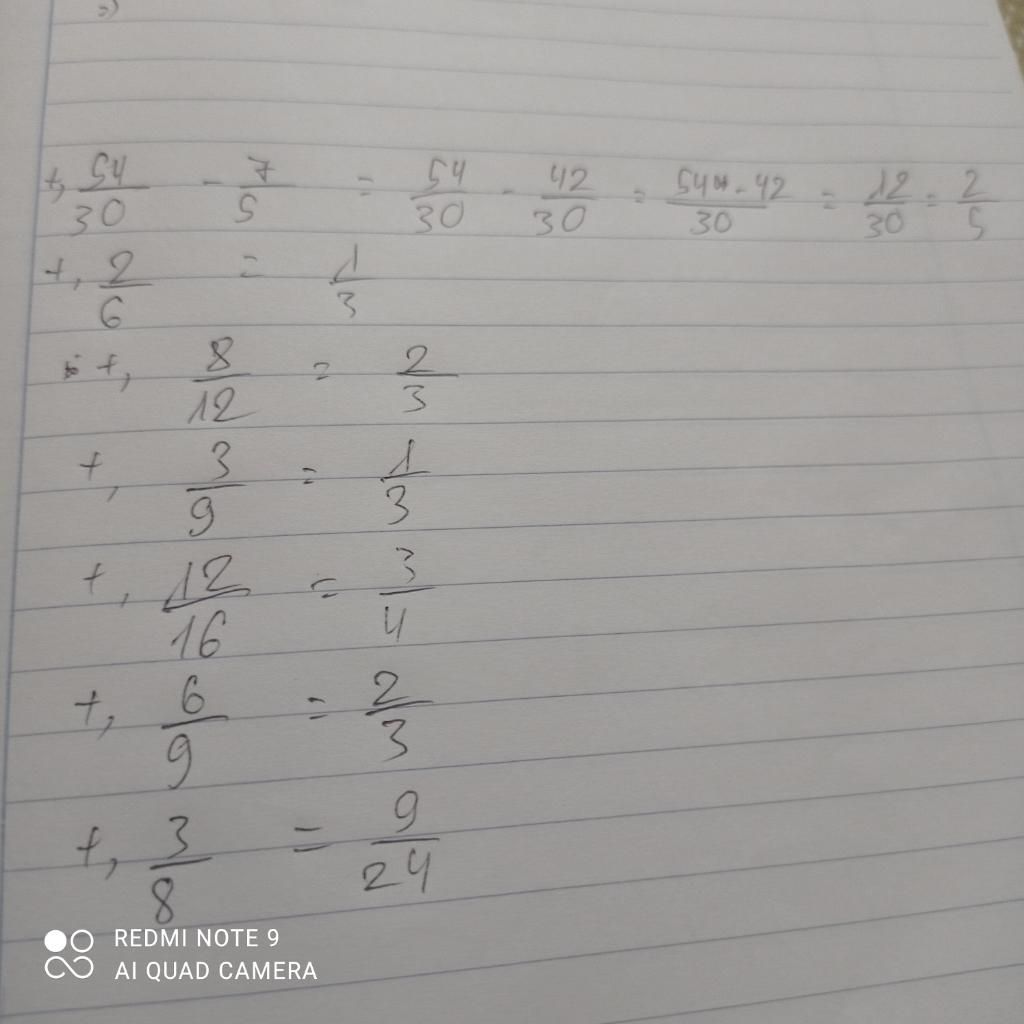 +, 54/30 - 7/5 = 54/30 - 42/30 = 54-42/30 = 12/30 = 2/5
+, 2/6 = 1/3
+, 8/12 = 2/3
+, 3/9 = 1/3
+, 12/16 = 3/4
+, 6/9 = 2/3
+, 3/8 = 9/24
REDMI NOTE 9
AI QUAD CAMERA